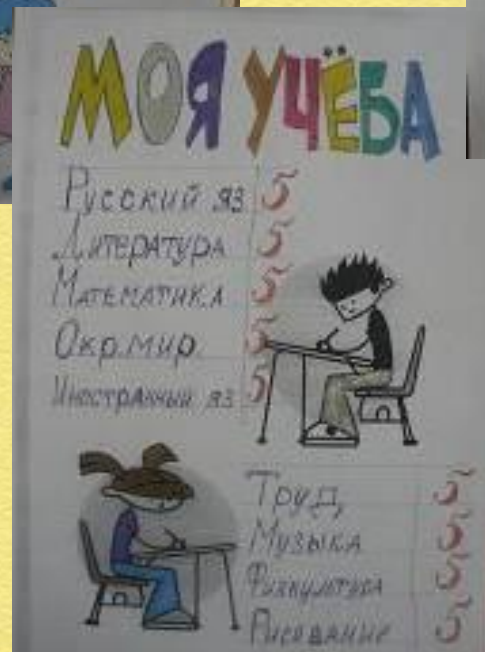 МОЯ УЧЁБА
Русский яз 5
Литература 5
Математика 5
Окр.мир. 5
Иностранный яз 5
Труд 5
Музыка 5
Физкультура 5
Рисование 5